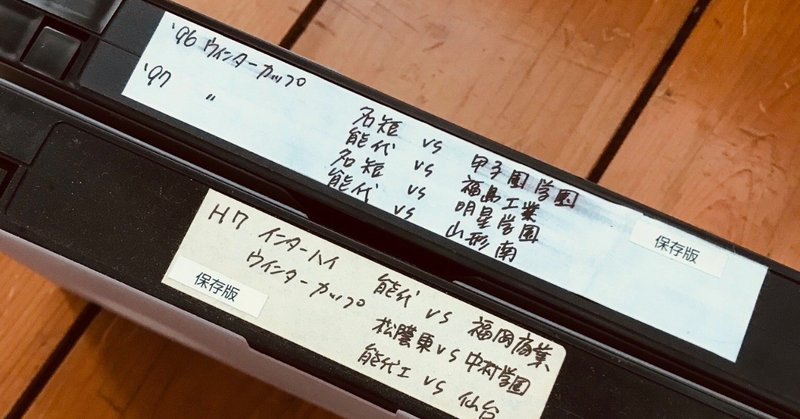 '96 ウインターカップ
'97 〃
名短 vs 甲子園学園
能代 vs 福島工業
名短 vs 明星学園
能代 vs 山形南
保存版
H7 インターハイ 能代 vs 福岡商業
ウインターカップ 松蔭東 vs 中村学園
能代工 vs 仙台
保存版